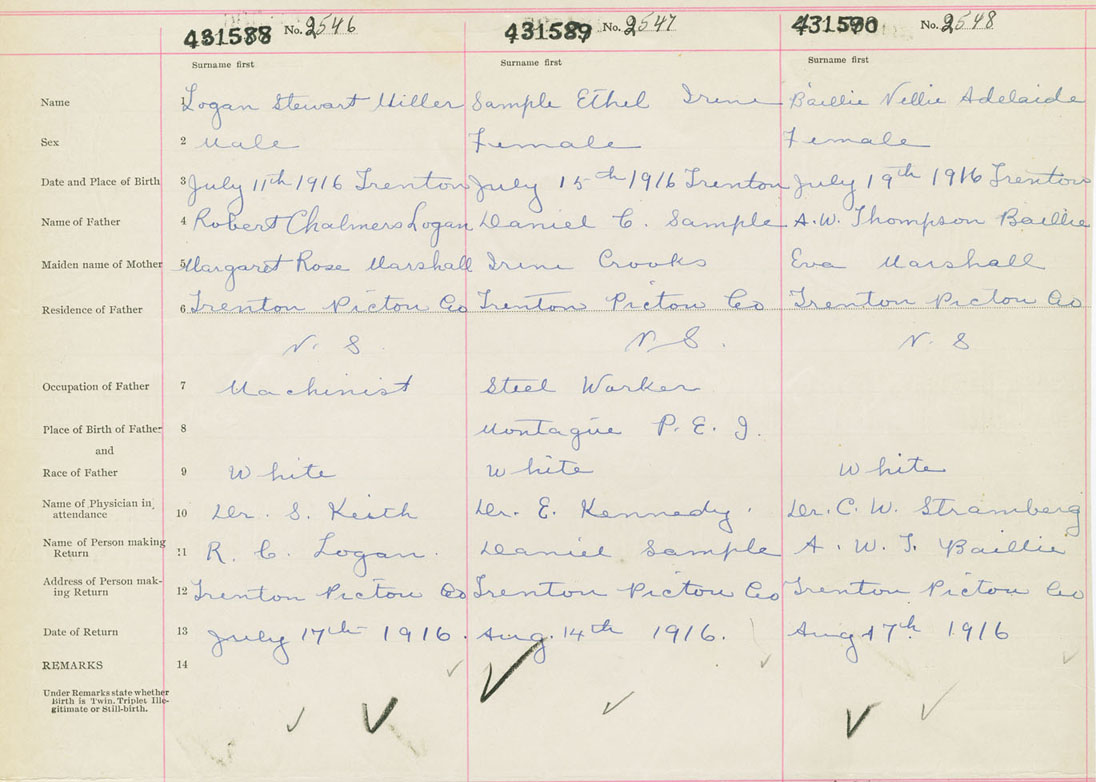 431588 No. 2546 431589 No. 2547 431590 No. 2548
Surname first Surname first Surname first
Name 1 Logan Stewart Miller Sample Ethel Irene Baillie Nellie Adelaide
Sex 2 Male Female Female
Date and Place of Birth 3 July 11th 1916 Trenton July 15th 1916 Trenton July 19th 1916 Trenton
Name of Father 4 Robert Chalmers Logan Daniel C. Sample A.W. Thompson Baillie
Maiden name of Mother 5 Margaret Rose Marshall Irene Crooks Eva Marshall
Residence of Father 6 Trenton Pictou Co Trenton Pictou Co Trenton Pictou Co
N. S N S. N. S
Occupation of Father 7 Machinist Steel Worker
Place of Birth of Father 8 Montague P. E. I.
and
Race of Father 9 White White White
Name of Physician in attendance 10 Dr. S. Keith Dr. E. Kennedy. Dr. C. W. Stramberg
Name of Person making Return 11 R. C. Logan. Daniel Sample A. W. T. Baillie
Address of Person making Return 12 Trenton Pictou Co Trenton Pictou Co Trenton Pictou Co
Date of Return 13 July 17th 1916. Aug. 14th 1916. Aug 17th 1916
REMARKS 14
Under Remarks state whether
Birth is Twin. Triplet Ille-
gitimate or Still-birth.